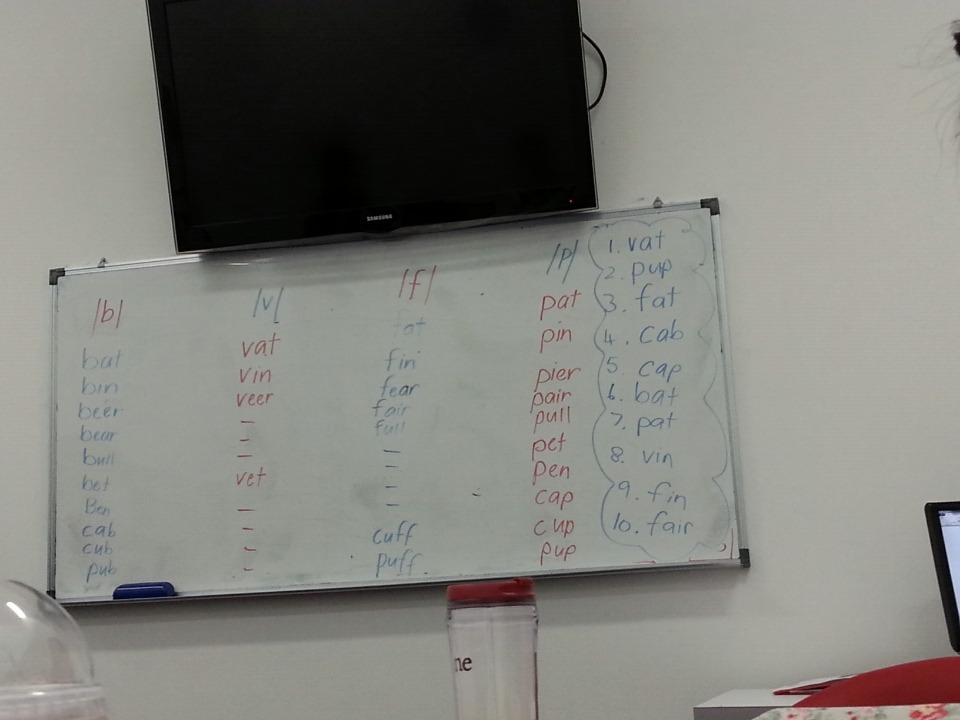 SAMSUNG
/b/ /v/ /f/ /p/
bat vat fat pat
bin vin fin pin
beer veer fear pier
bear – fair pair
bull – full pull
bet vet – pet
Ben – – pen
cab – – cap
cub – cuff cup
pub – puff. pup
1. vat
2. pup
3. fat
4. cab
5. cap
6. bat
7. pat
8. vin
9. fin
10. fair
ne